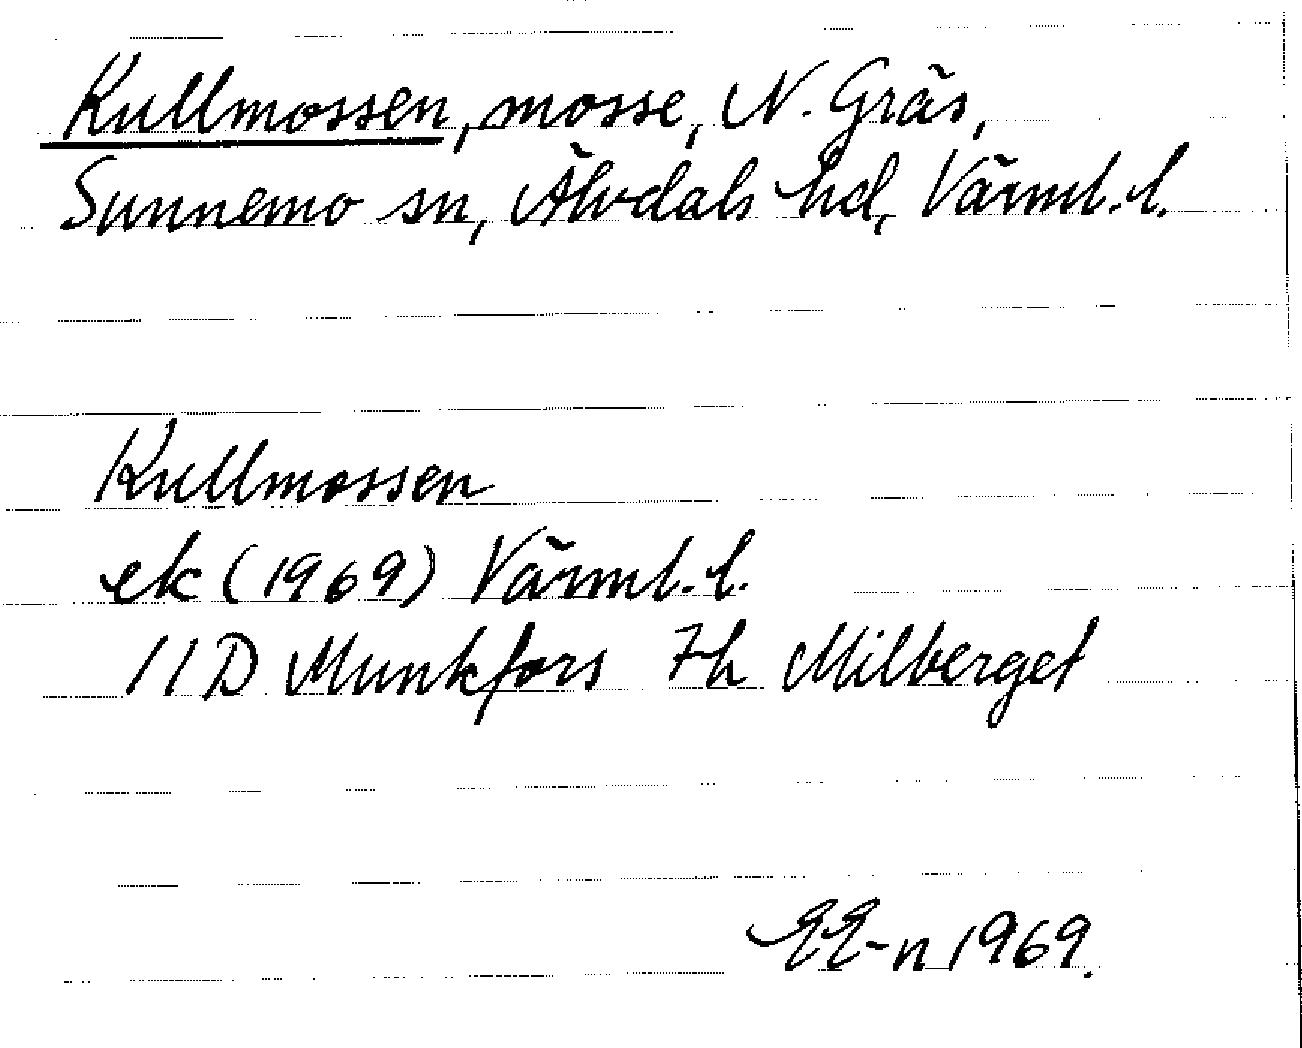 Kullmossen, mosse, N. Gräs,
Sunnemo sn, Älvdals hd, Värml. l.
Kullmossen
ek (1969) Värml. l.
11D Munkfors 7h Milberget
EE-n 1969.